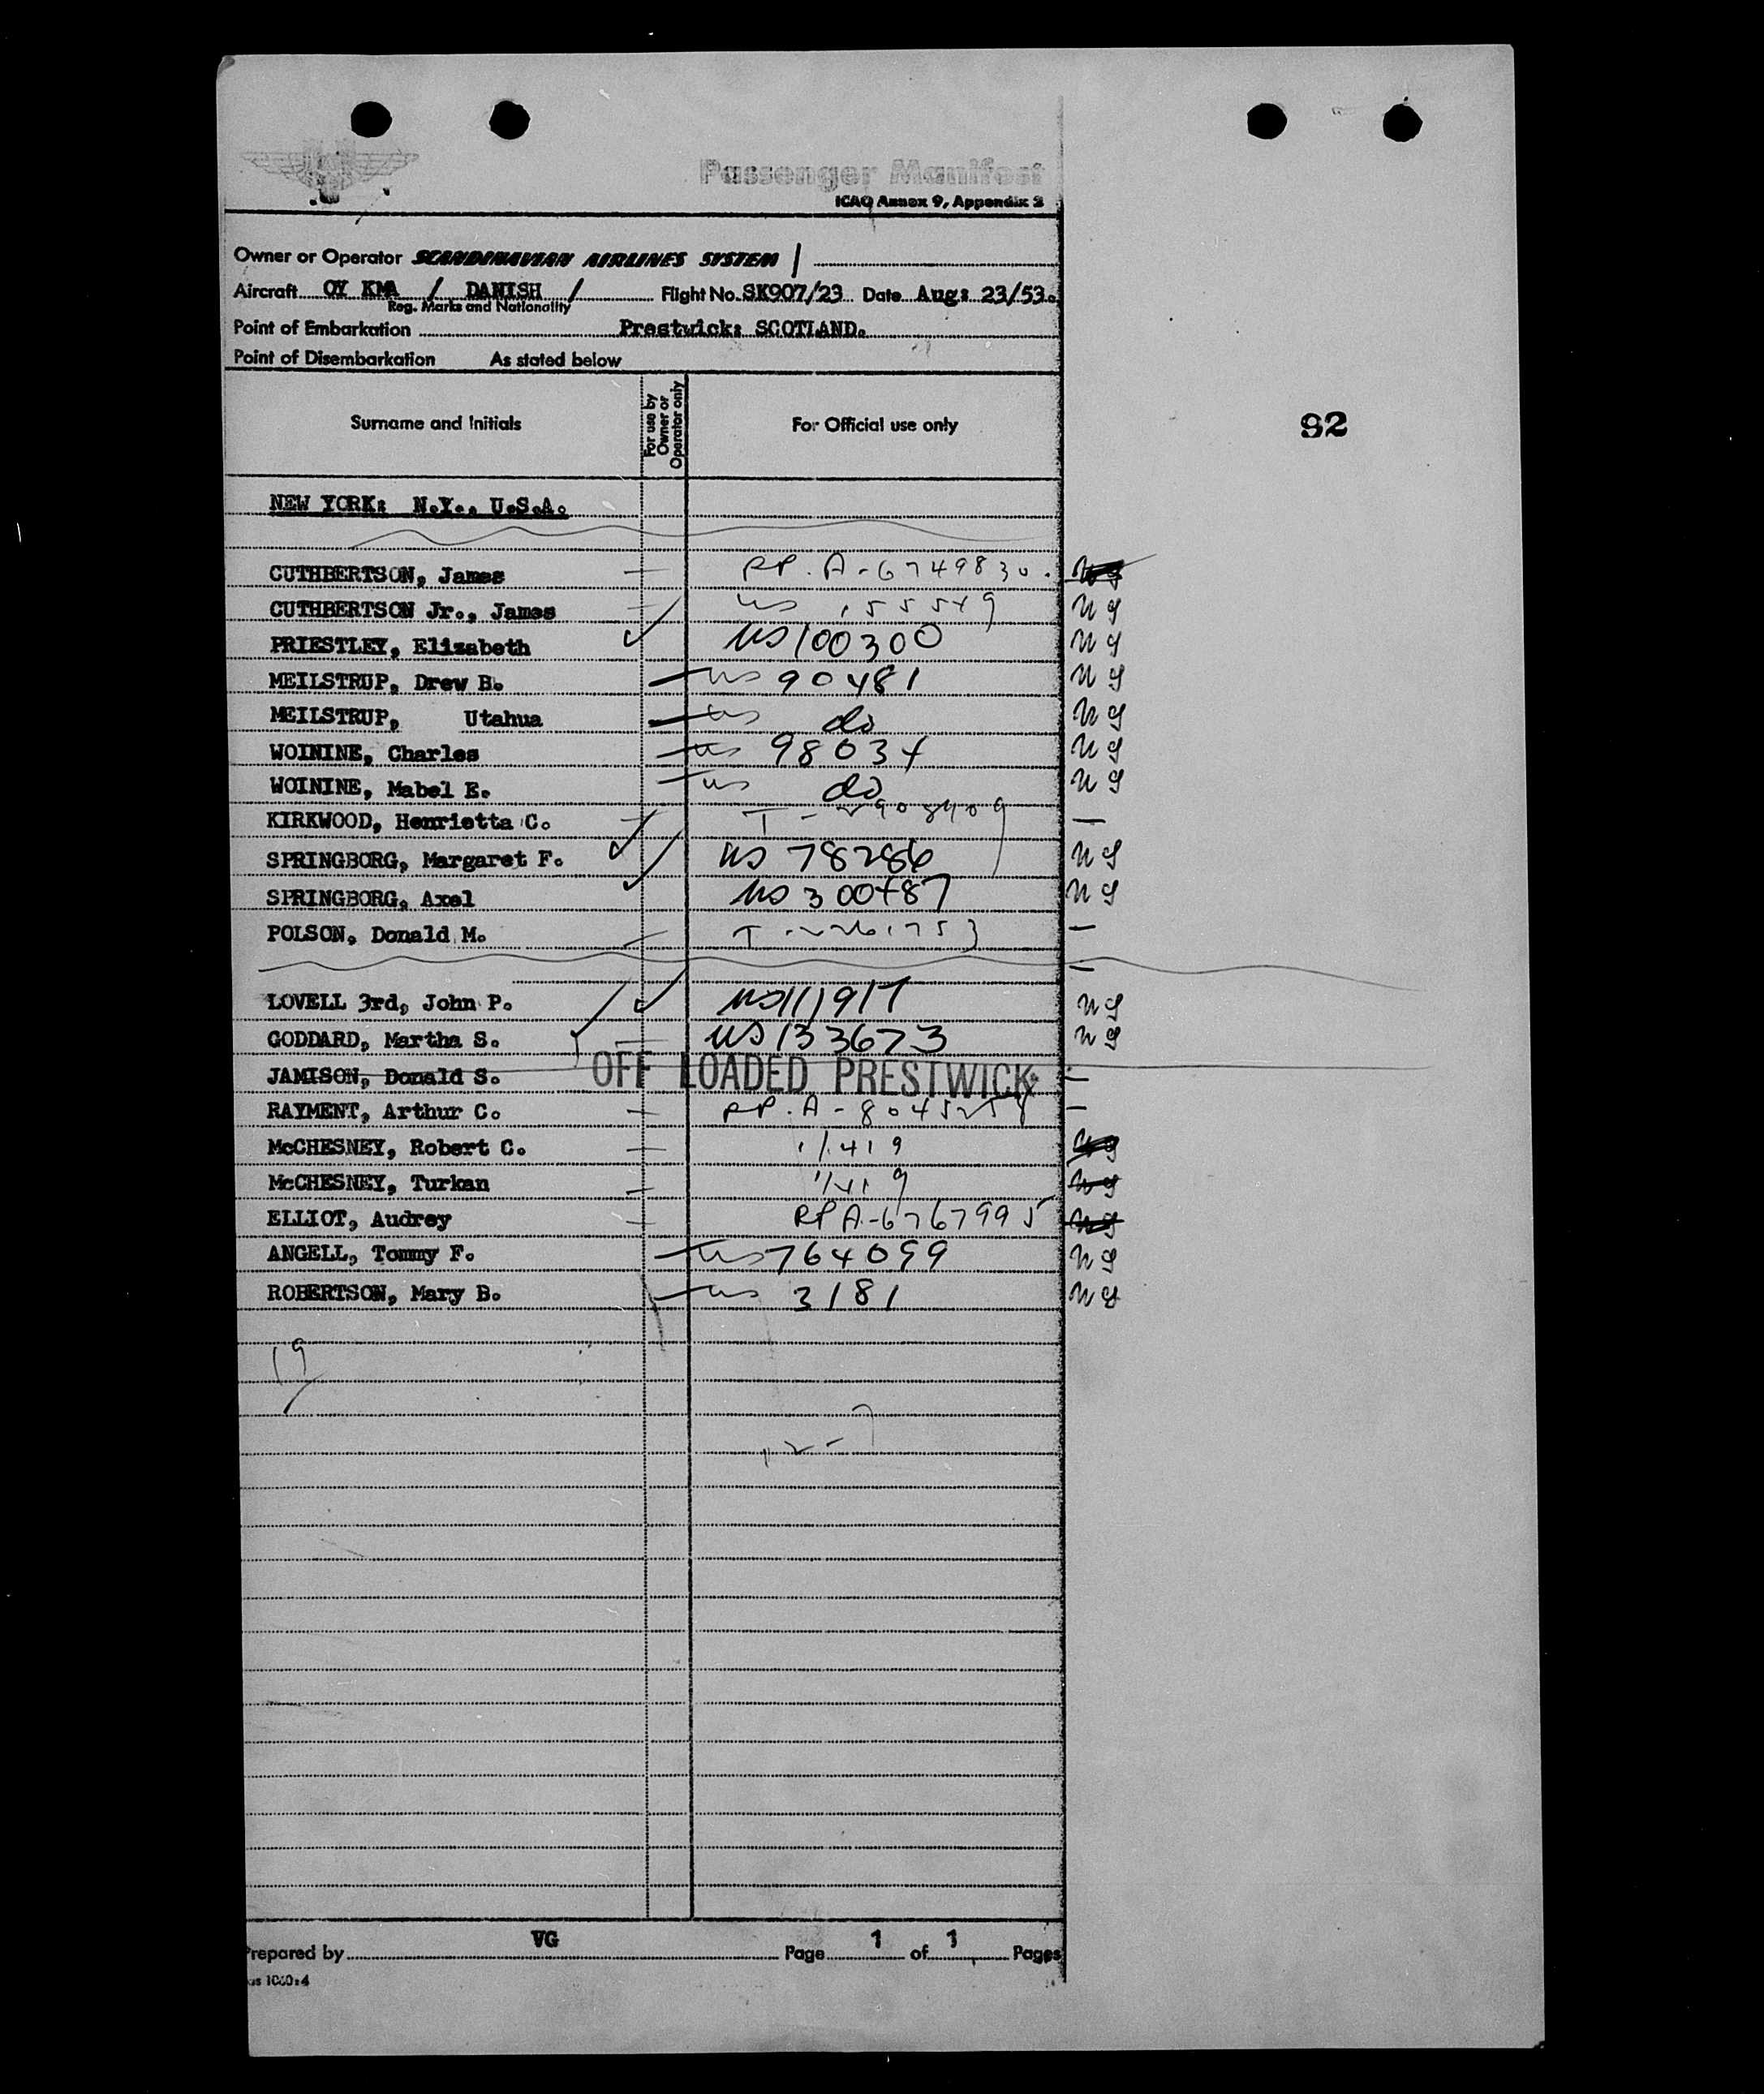 Passenger Manifest
ICAO Annex 9, Appendix 2
Owner or Operator SCANDINAVIAN AIRLINES SYSTEM /
Aircraft OY KMA / DANISH / Flight No. SK907/23 Date Aug: 23/53.
Reg. Marks and Nationality
Point of Embarkation Prestwick: SCOTLAND.
Point of Disembarkation As stated below
Surname and Initials For use by Owner or Operator only For Official use only
92
NEW YORK: N.Y., U.S.A.
CUTHBERTSON, James RP. A-6749830.
CUTHBERTSON Jr., James US 155549 NG
PRIESTLEY, Elizabeth US 100300 NG
MEILSTRUP, Drew B. US 90481 NG
MEILSTRUP, Utahua US do NG
WOININE, Charles US 98034 NG
WOININE, Mabel E. US do NG
KIRKWOOD, Henrietta C. —
SPRINGBORG, Margaret F. US 78286 NG
SPRINGBORG, Axel US 300487 NG
POLSON, Donald M. —
LOVELL 3rd, John P. US 111917 NG
GODDARD, Martha S. US 133673 NG
JAMISON, Donald S. OFF LOADED PRESTWICK —
RAYMENT, Arthur C. RP. A-8045258 —
McCHESNEY, Robert C. 11419
McCHESNEY, Turkan 11419
ELLIOT, Audrey RP A-6767995
ANGELL, Tommy F. US 764099 NG
ROBERTSON, Mary B. US 3181 NG
19
Prepared by VG Page 1 of 1 Pages